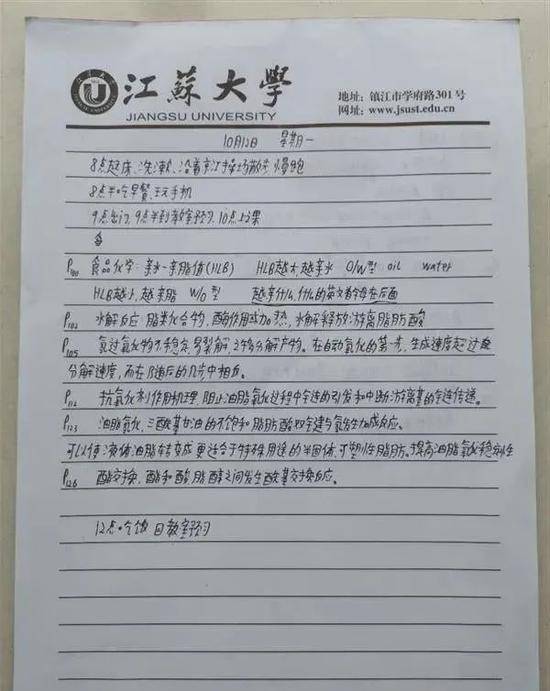 江苏大学
JIANGSU UNIVERSITY
地址: 镇江市学府路301号
网址: www.jsust.edu.cn
10月12日 星期一
8点起床、洗漱、沿着京江操场散步、慢跑
8点半吃早餐、玩手机
9点出门, 9点半到教室预习, 10点上课
P100 食品化学: 亲水-亲脂值(HLB) HLB越大越亲水 O/W型 oil water
HLB越小, 越亲脂 W/O型 越亲什么, 什么的英文首字母在后面
P102 水解反应: 脂类化合物, 酶作用或加热, 水解释放游离脂肪酸
P105 氢过氧化物不稳定, 易裂解, 产物分解产物。在自动氧化的第一步, 生成速度超过
分解速度, 而在随后的几步中相反。
P112 抗氧化剂作用机理, 阻止油脂氧化过程中链的引发和中断游离基的链传递。
P123 油脂氢化, 三酰基甘油的不饱和脂肪酸双键与氢发生加成反应。
可以使液体油脂转变成更适合于特殊用途的半固体、可塑性脂肪。提高油脂氧化稳定性
P126 酯交换, 酯和酸、脂、醇之间发生酰基交换反应。
12点吃饭 回教室预习